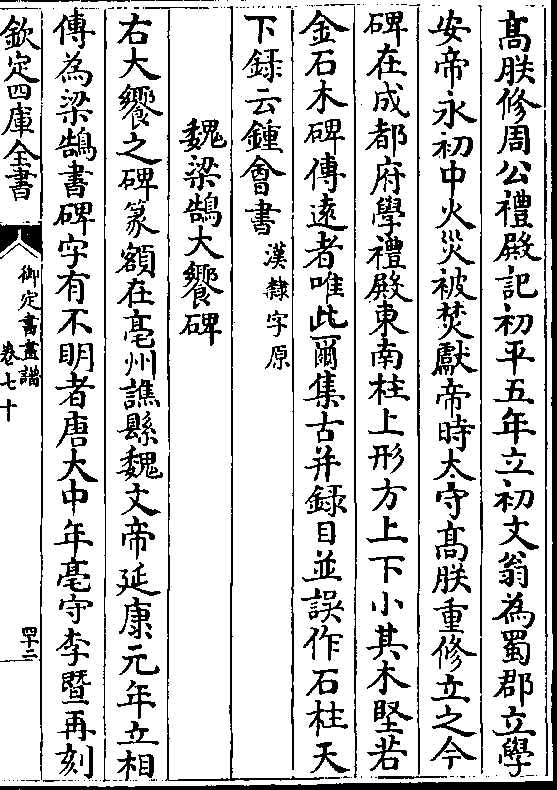 髙朕修周公禮殿記初平五年立初文翁為蜀郡立學
安帝永初中火災被焚獻帝時太守髙朕重修立之今
碑在成都府學禮殿東南柱上形方上下小其木堅若
金石木碑傳遠者唯此爾集古并録目並誤作石柱天
下録云鍾會書漢隸字原
魏梁鵠大饗碑
右大饗之碑篆額在亳州譙縣魏文帝延康元年立相
傳為梁鵠書碑字有不明者唐大中年亳守李暨再刻
欽定四庫全書
御定書畫譜
卷七十
四十二